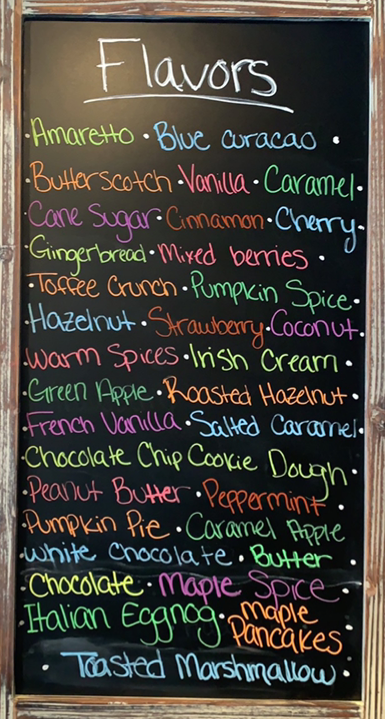 Flavors
·Amaretto · Blue curacao ·
·Butterscotch ·Vanilla ·Caramel·
·Cane Sugar·Cinnamon·Cherry·
·Gingerbread·Mixed berries ·
·Toffee Crunch ·Pumpkin Spice·
·Hazelnut ·Strawberry·Coconut·
·Warm Spices·Irish Cream ·
·Green Apple ·Roasted Hazelnut ·
·French Vanilla ·Salted Caramel·
·Chocolate Chip Cookie Dough·
·Peanut Butter ·Peppermint ·
·Pumpkin Pie ·Caramel Apple
·White Chocolate · Butter ·
·Chocolate · Maple Spice ·
·Italian Eggnog · maple Pancakes ·
· Toasted Marshmallow ·